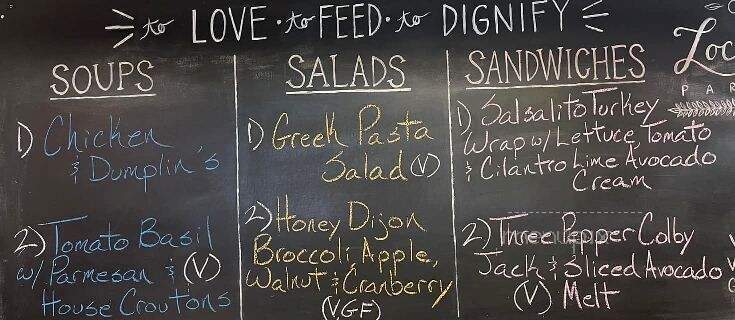 to LOVE · to FEED · to DIGNIFY
SOUPS
1) Chicken
& Dumplin's
2) Tomato Basil
w/ Parmesan & (V)
House Croutons
SALADS
1) Greek Pasta
Salad (V)
2) Honey Dijon
Broccoli, Apple,
Walnut & Cranberry
(V, GF)
SANDWICHES
1) Salsalito Turkey
Wrap w/ Lettuce, Tomato
& Cilantro Lime Avocado
Cream
2) Three Pepper Colby
Jack & Sliced Avocado
(V) Melt
Loc
PAR